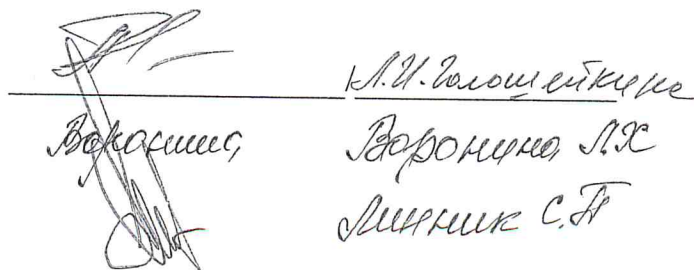 Л.И. Голошейкина
Воронина Воронина Л.Х
Линник С.П